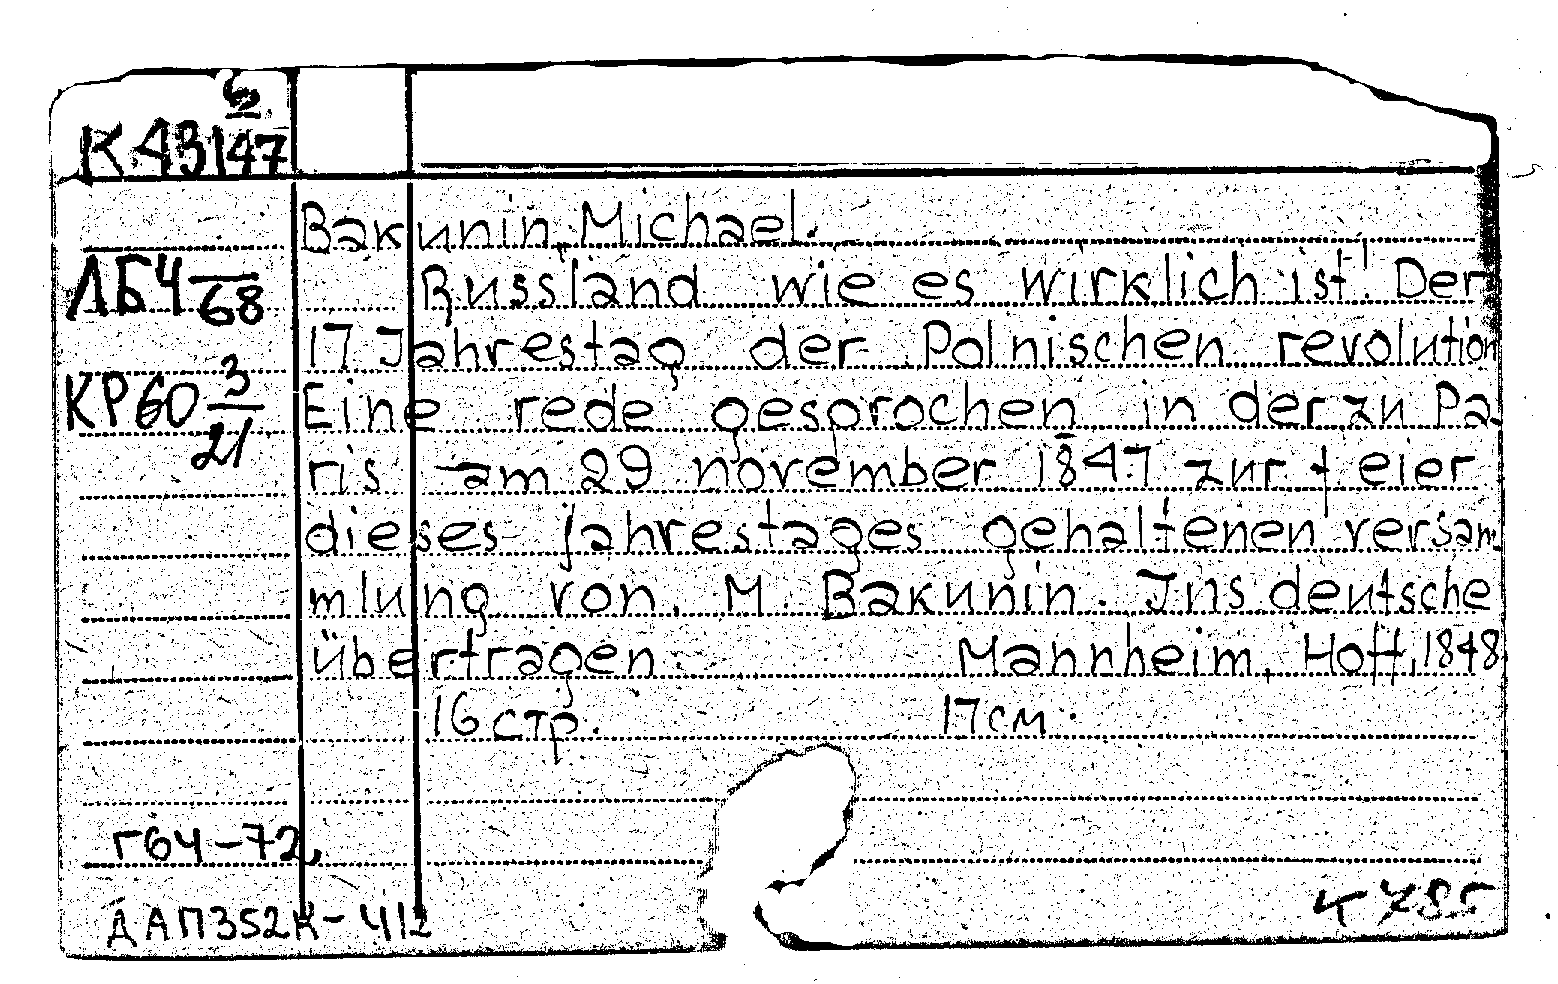 К АЗ 6/147
Bakunin, Michael.
ЛБЧ /68
Russland wie es wirklich ist! Der
17 Jahrestag der Polnischen revolution
КР60 3/21
Eine rede gesprochen in der zu Pa-
ris am 29 november 1847 zur feier
dieses jahrestages gehaltenen versam
mlung von. M. Bakunin. Ins deutsche
übertragen Mannheim, Hoff, 1848
16 стр. 17 см.
Г64-72.
ДАП352К-412